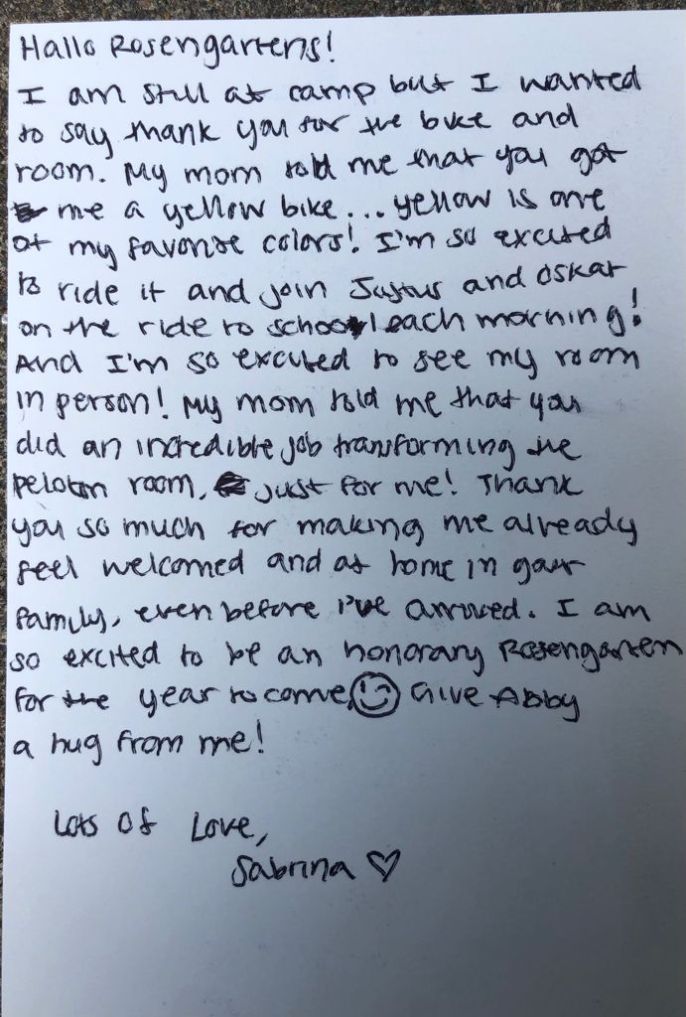 Hallo Rosengartens!
I am still at camp but I wanted
to say thank you for the bike and
room. My mom told me that you got
me a yellow bike... yellow is one
of my favorite colors! I'm so excited
to ride it and join Justus and Oskar
on the ride to school each morning!
And I'm so excited to see my room
in person! My mom told me that you
did an incredible job transforming the
peloton room, just for me! Thank
you so much for making me already
feel welcomed and at home in your
family, even before I've arrived. I am
so excited to be an honorary Rosengarten
for the year to come. Give Abby
a hug from me!
Lots of Love,
Sabrina